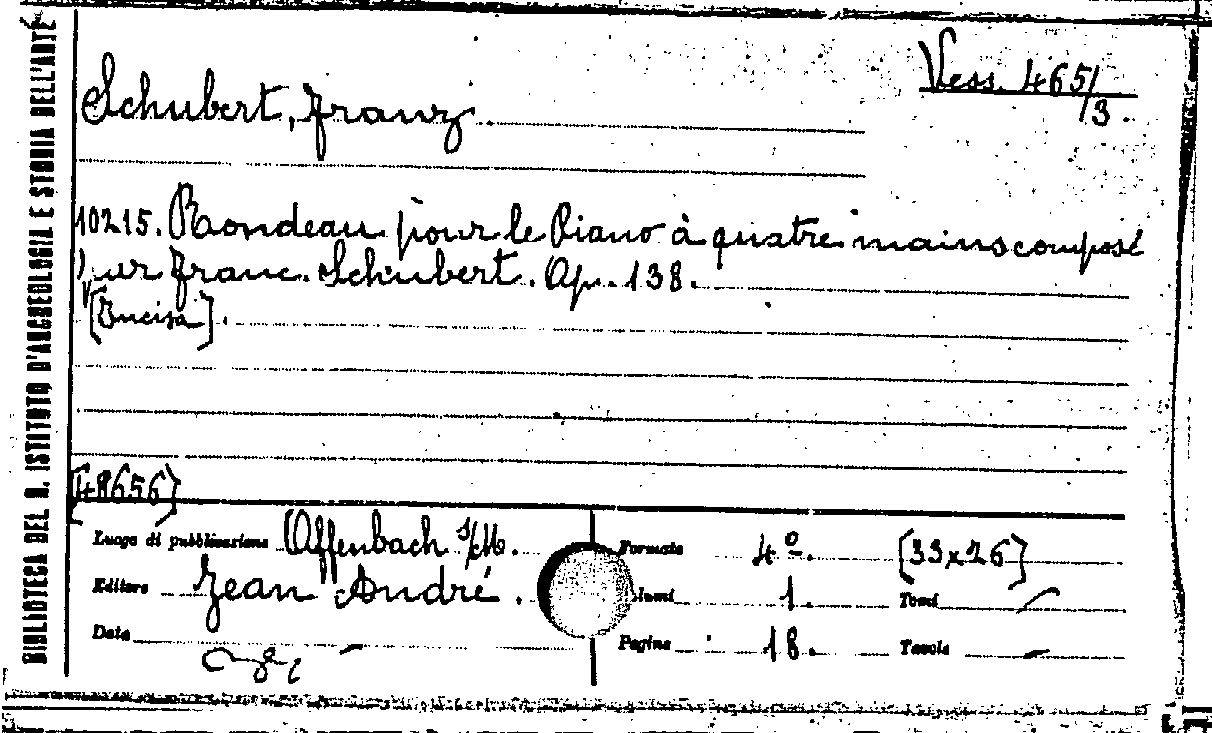 BIBLIOTECA DEL R. ISTITUTO D'ARCHEOLOGIA E STORIA DELL'ARTE
Vess. 465/3.
Schubert, Franz
10215. Rondeau pour le Piano à quatre mains composé
par Franc. Schubert. Op. 138.
[Incisa].
[48656]
Luogo di pubblicazione Offenbach s/M. Formato 4º. [33x26]
Editore Jean André. lumi 1. Tomi
Data Pagine 18. Tavole